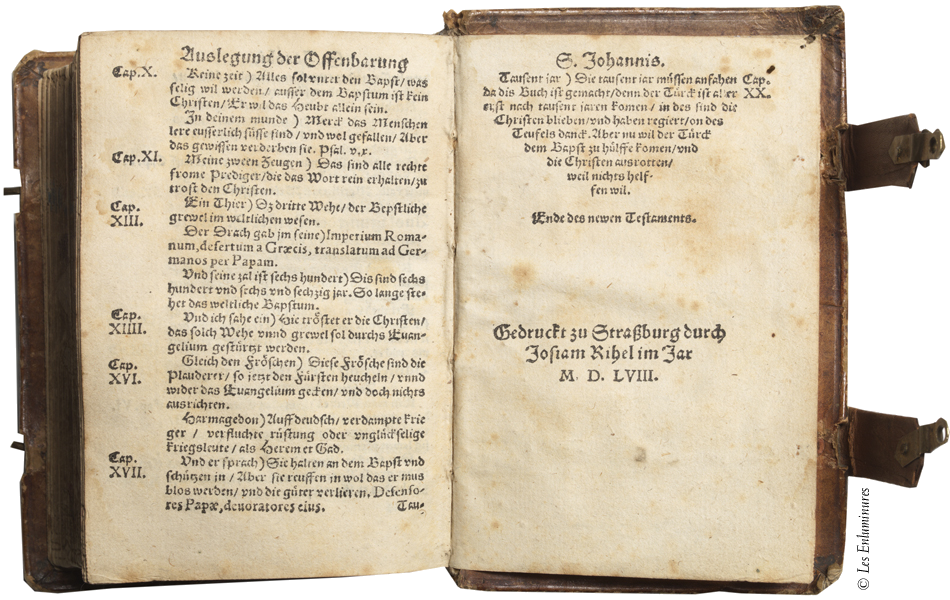 Auslegung der Offenbarung
Cap. X. Keine zeit) Alles solvnter den Bapst/was
selig wil werden/ausser dem Bapstum ist kein
Christen/Er wil das Heubt allein sein.
In deinem munde) Merck das Menschen
lere eusserlich süsse sind/vnd wol gefallen/Aber
das gewissen verderben sie. Psal. v,x.
Cap. XI. Meine zween Zeugen) Das sind alle rechte
frome Prediger/die das Wort rein erhalten/zu
trost den Christen.
Cap. Ein Thier) Dz dritte Wehe/der Bepstliche
XIII. grewel im weltlichen wesen.
Der Drach gab jm seine) Imperium Roma-
num, desertum a Græcis, translatum ad Ger-
manos per Papam.
Vnd seine zal ist sechs hundert) Dis sind sechs
hundert vnd sechs vnd sechzig jar. So lange ste-
het das weltliche Bapstum.
Cap. Vnd ich sahe ein) Hie tröstet er die Christen/
XIIII. das solch Wehe vnnd grewel sol durchs Euan-
gelium gestürtzt werden.
Cap. Gleich den Fröschen) Diese Frösche sind die
XVI. Plauderer/so jetzt den Fürsten heucheln/vnnd
wider das Euangelium gecken/vnd doch nichts
ausrichten.
Harmagedon) Auff deudsch/verdampte krie
ger / verfluchte rüstung oder vnglückselige
kriegsleute/als Herem et Gad.
Cap. Vnd er sprach) Sie halten an dem Bapst vnd
XVII. schützen in/Aber sie reuffen in wol das er mus
blos werden/vnd die güter verlieren. Defenso-
res Papæ, deuoratores eius. Tau-
S. Johannis.
Tausent jar) Die tausent jar müssen anfahen Cap.
da dis Buch ist gemacht/denn der Türck ist aller XX.
erst nach tausent jaren komen/in des sind die
Christen blieben/vnd haben regiert/on des
Teufels danck. Aber nu wil der Türck
dem Bapst zu hülffe komen/vnd
die Christen ausrotten/
weil nichts helf-
fen wil.
Ende des newen Testaments.
Gedruckt zu Straßburg durch
Josiam Rihel im Jar
M. D. LVIII.
© Les Enluminures